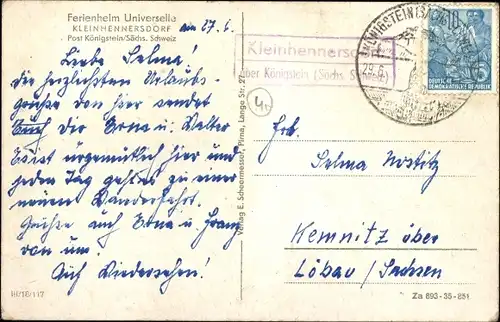 Ferienheim Universelle
KLEINHENNERSDORF
Post Königstein/Sächs. Schweiz
am 27. 6.
Liebe Selma!
die herzlichsten Urlaubs-
grüße von hier sendet
Euch die Erna u. Walter
Es ist urgemütlich hier und
jeden Tag geht es zu einer
neuen Wanderfahrt.
Grüße auch Erna u. Franz
von uns.
Auf Wiedersehen!
III/18/117
Verlag E. Scheermesser, Pirna, Lange Str. 27
Kleinhennersdorf
über Königstein (Sächs. Schweiz)
KÖNIGSTEIN (SÄCHS
10
DEUTSCHE
DEMOKRATISCHE REPUBLIK
Frl.
Selma Nostitz
Kemnitz über
Löbau / Sachsen
Za 893-35-851